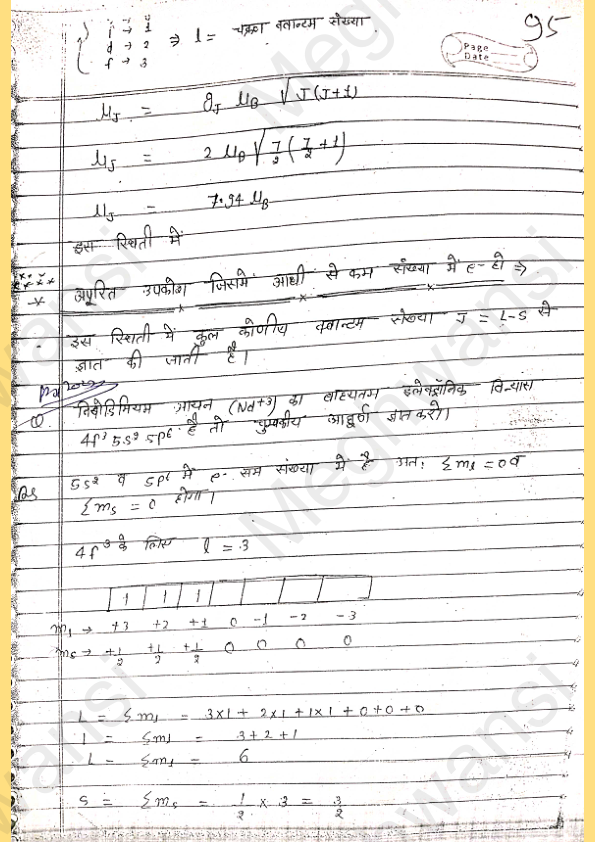 95
Page
Date
p → 1
d → 2
f → 3
⇒ l = चक्रा क्वान्टम संख्या
μJ = gJ μB √J(J+1)
μJ = 2 μB √7/2 (7/2 + 1)
μJ = 7.94 μB
इस स्थिती में
अपूरित उपकोश जिसमें आधी से कम संख्या में e- हो ⇒
इस स्थिती में कुल कोणीय क्वान्टम संख्या J = L-S से
ज्ञात की जाती है।
① नियोडिमियम आयन (Nd+3) का बाह्यतम इलेक्ट्रॉनिक विन्यास
4f³ 5s² 5p⁶ है तो चुम्बकीय आघूर्ण ज्ञात करो।
5s² व 5p⁶ में e- सम संख्या में है अतः Σml = 0 व
Σms = 0 होगा।
4f³ के लिए l = 3
1 1 1
ml → +3 +2 +1 0 -1 -2 -3
ms → +1/2 +1/2 +1/2 0 0 0 0
L = Σml = 3x1 + 2x1 + 1x1 + 0 + 0 + 0
L = Σml = 3 + 2 + 1
L = Σml = 6
S = Σms = 1/2 x 3 = 3/2